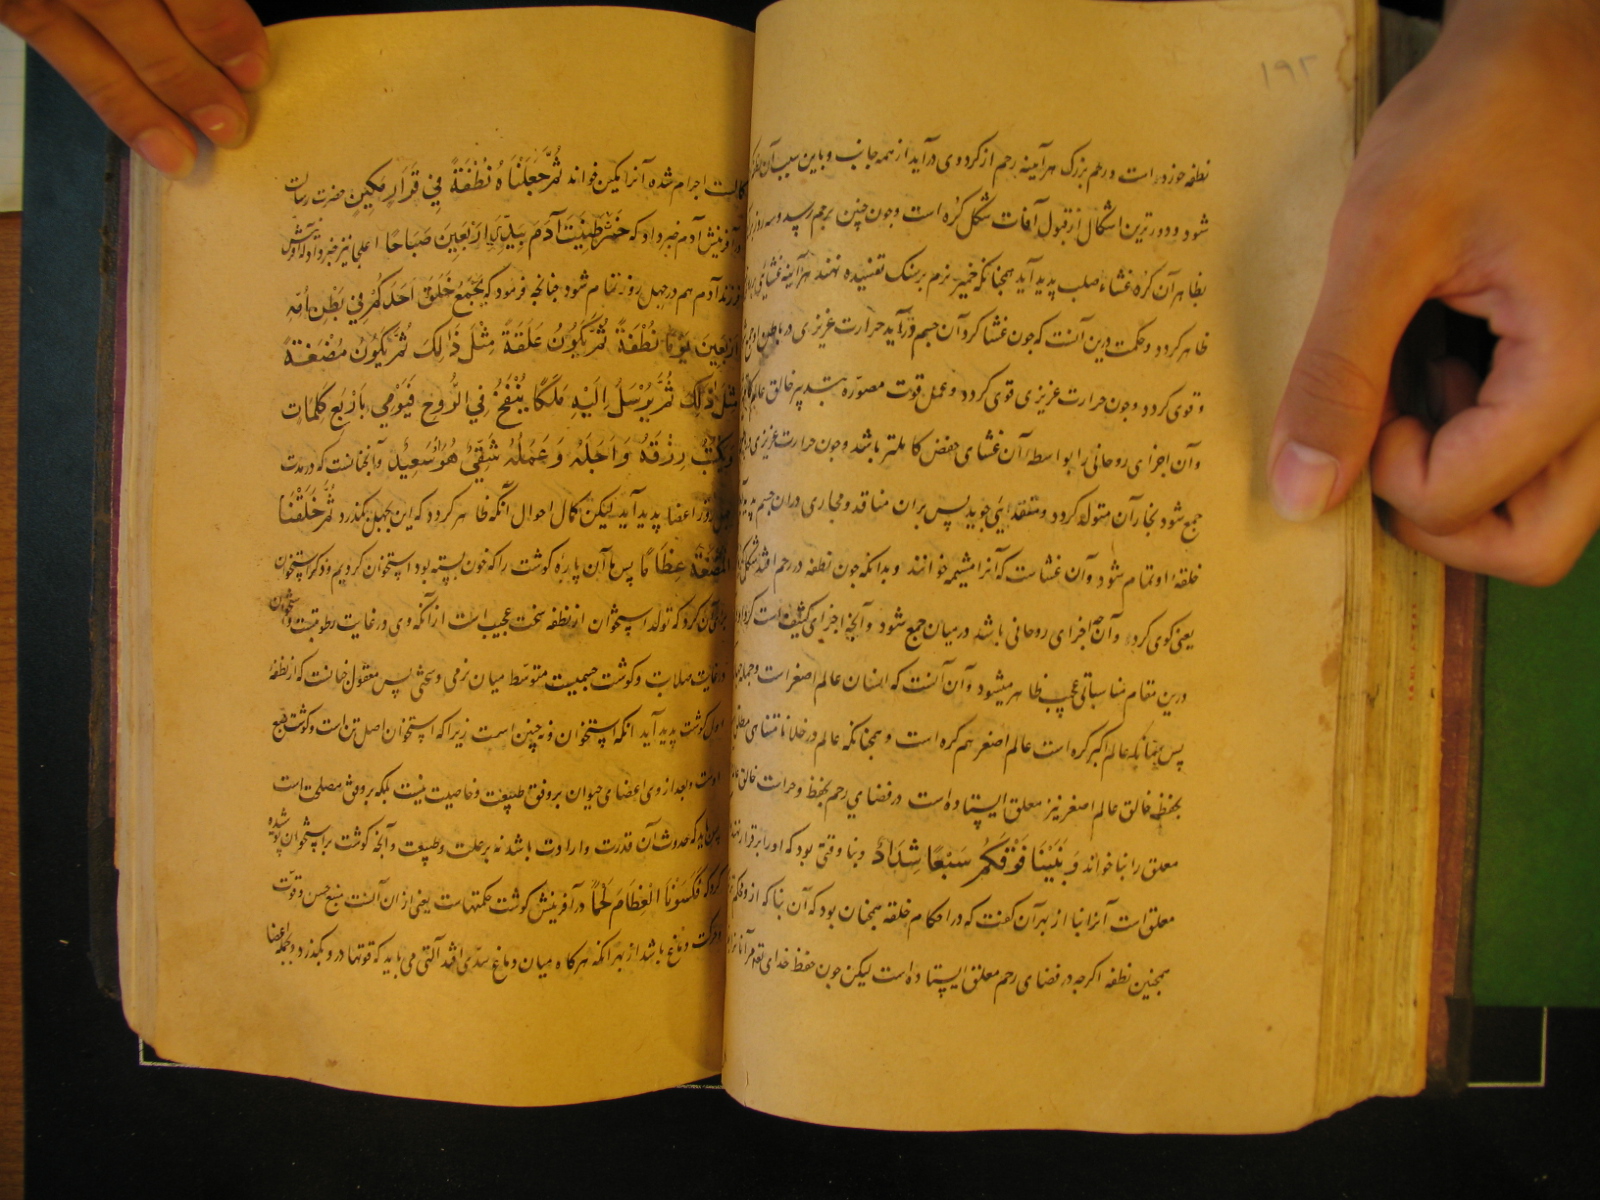 ۱۹۲
نطفه خورد است و رحم بزرگ هرآینه رحم از کرد وی درآید از همه جانب و باین سبب آن نطفه
شود و دورترین اشکال از قبول آفات شکل کره است و چون چنین برحم رسد و سه روز
بظاهر آن کره غشاء صلب پدید آید همچنانکه خمیر نرم بر سنک تفسیده نهند هرآینه غشائی
ظاهر کردد و حکمت درین آنست که چون غشا کرد آن جسم درآید حرارت غریزی در باطن او
و قوی کردد و چون حرارت غریزی قوی کردد و عمل قوت مصوره پس خالق عالم
و آن اجزای روحانی را بواسطه آن غشای حفض کاملتر باشد و چون حرارت غریزی
جمع شود بخار آن متولد کردد و متفقدایی جوید پس بران منافد و مجاری دران جسم پدید
خلقه او تمام شود و آن غشاست که آنرا مشیمه خوانند و بدانکه چون نطفه در رحم افتد شکل
یعنی کوی کردد و آنچه اجزای روحانی باشد در میان جمع شود و آنچه اجزای کثیف است
درین مقام مناسباتی عجب ظاهر میشود و آن آنست که انسان عالم اصغر است
پس چنانکه عالم اکبر کره است عالم اصغر هم کره است و همچنانکه عالم در خلا نامتناهی
بحفظ خالق عالم اصغر نیز معلق ایستاده است در فضای رحم بحفظ و حراست خالق
معلق را بنا خواند وَبَنَيْنَا فَوْقَكُمْ سَبْعًا شِدَادًا و بنا وقتی بود که اورا برقرار
معلق است آنرا بنا از بهر آن کفت که در احکام خلقه همچنان بود که آن بنا که از
همچنین نطفه اکرچه در فضای رحم معلق ایستاده است لیکن چون حفظ خدای تعه مر آنرا
کالت اجرام شده آنرا مکین خواند ثُمَّ جَعَلْنَاهُ نُطْفَةً فِي قَرَارٍ مَكِينٍ حضرت رسالت
در آفرینش آدم خبر داد که خَمَّرَ طِينَتَ آدَمَ بِيَدِي أَرْبَعِينَ صَبَاحًا
فرزند آدم هم در چهل روز تمام شود چنانچه فرمود که يُجْمَعُ خَلْقُ أَحَدِكُمْ فِي بَطْنِ أُمِّهِ
أَرْبَعِينَ يَوْمًا نُطْفَةً ثُمَّ يَكُونُ عَلَقَةً مِثْلَ ذَالِكَ ثُمَّ يَكُونُ مُضْغَةً
مِثْلَ ذَالِكَ ثُمَّ يُرْسَلُ إِلَيْهِ مَلَكًا يُنْفَخُ فِي الرُّوحِ فَيُؤْمَى بِأَرْبَعِ كَلِمَاتٍ
وَيَكْتُبُ رِزْقَهُ وَأَجَلَهُ وَعَمَلُهُ شَقِيٌّ هُوَ أَوْ سَعِيدٌ و آنچنانست که در مدت
چهل روز اعضا پدید آید لیکن کمال احوال آنکه ظاهر کردد که این چهل بکذرد ثُمَّ خَلَقْنَا
الْمُضْغَةَ عِظَامًا پس ما آن پاره کوشت را که خون بسته بود استخوان کردیم و ذکر استخوان
برای آن کرد که تولد استخوان از نطفه سخت عجیب است ازآنکه وی در غایت رطوبتست و استخوان
در غایت صلابت و کوشت جسمیست متوسط میان نرمی و سختی پس معقول چنانست که از نطفه
اول کوشت پدید آید آنکه استخوان و نه چنین است زیرا که استخوان اصل تن است و کوشت تبع
اوست و بعد از وی اعضای حیوان بر وفق طبیعت و خاصیت نیست بلکه بر وفق مصلحت است
پس که حدوث آن قدرت و ارادت باشد نه بر علت و طبیعت و آنچه کوشت بر استخوان پوشیده
کرد که فَكَسَوْنَا الْعِظَامَ لَحْمًا در آفرینش کوشت حکمتهاست یعنی ازان آنست منبع حس و قوت
و حرکت دماغ باشد از بهر آنکه هرکاه میان دماغ سدی افتد آلتی می باید که قوتها در و بکذرد و بجمله اعضا